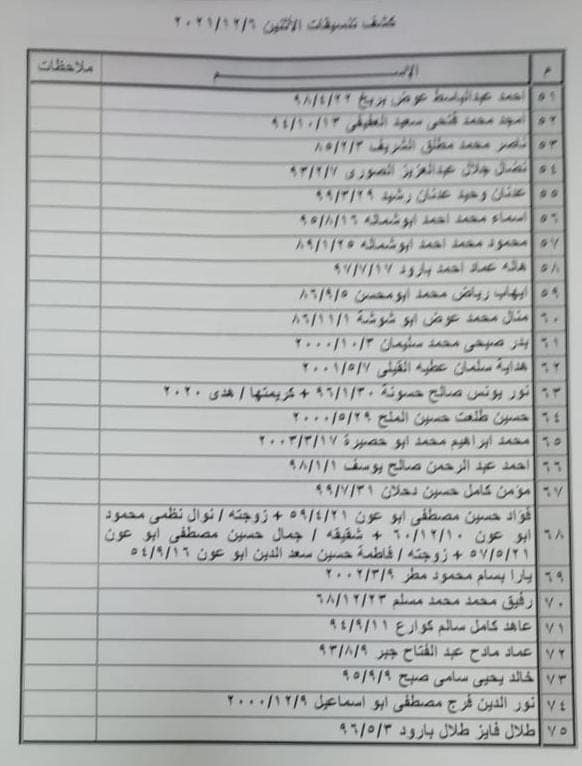 كشف تنسيقات الاثنين ٢٠٢١/١٢/٦
م الإســـم ملاحظات
٥١ احمد عبدالباسط عوض بربخ ٩٨/٤/٢٢
٥٢ امجد محمد فتحى سعيد العفيفى ٩٤/١٠/١٣
٥٣ ناصر محمد مطلق الشريف ٨٥/٢/٣
٥٤ نضال جلال عبدالعزيز الصورى ٩٣/٢/٧
٥٥ عدنان وحيد عدنان رشيد ٩٩/٣/٢٩
٥٦ اسماء محمد احمد ابوشماله ٩٥/٨/١٦
٥٧ محمود محمد احمد ابوشماله ٨٩/١/٢٥
٥٨ هاله عماد احمد بارود ٩٧/٧/١٧
٥٩ ايهاب رياض محمد ابومحسن ٨٦/٩/٥
٦٠ منال محمد عوض ابو شوشة ٨٦/١١/١
٦١ بدر صبحى محمد سليمان ٢٠٠٠/١٠/٣
٦٢ هداية سلمان عطيه القيلى ٢٠٠١/٥/٧
٦٣ نور يونس صالح حسونة ٩٦/١/٣٠ + كريمتها / هدى ٢٠٢٠
٦٤ حسين طلعت حسين الملح ٢٠٠٠/٥/٢٩
٦٥ محمد ابراهيم محمد ابو حصيرة ٢٠٠٣/٣/١٧
٦٦ احمد عبد الرحمن صالح يوسف ٩٨/١/١
٦٧ مؤمن كامل حسين دحلان ٩٩/٧/٣١
٦٨ فؤاد حسين مصطفى ابو عون ٥٩/٤/٢١ + زوجته / نوال نظمى محمود
ابو عون ٦٠/١٢/١٠ + شقيقه / جمال حسين مصطفى ابو عون
٥٧/٥/٢١ + زوجته / فاطمة حسين سعد الدين ابو عون ٥٤/٩/١٦
٦٩ يارا بسام محمود مطر ٢٠٠٢/٣/٩
٧٠ رفيق محمد محمد مسلم ٦٨/١٢/٢٣
٧١ عاهد كامل سالم كوارع ٩٤/٩/١١
٧٢ عماد مادح عبد الفتاح جبر ٩٣/٨/٩
٧٣ خالد يحيى سامى صبح ٩٥/٩/٩
٧٤ نور الدين فرج مصطفى ابو اسماعيل ٢٠٠٠/١٢/٩
٧٥ طلال فايز طلال بارود ٩٦/٥/٣